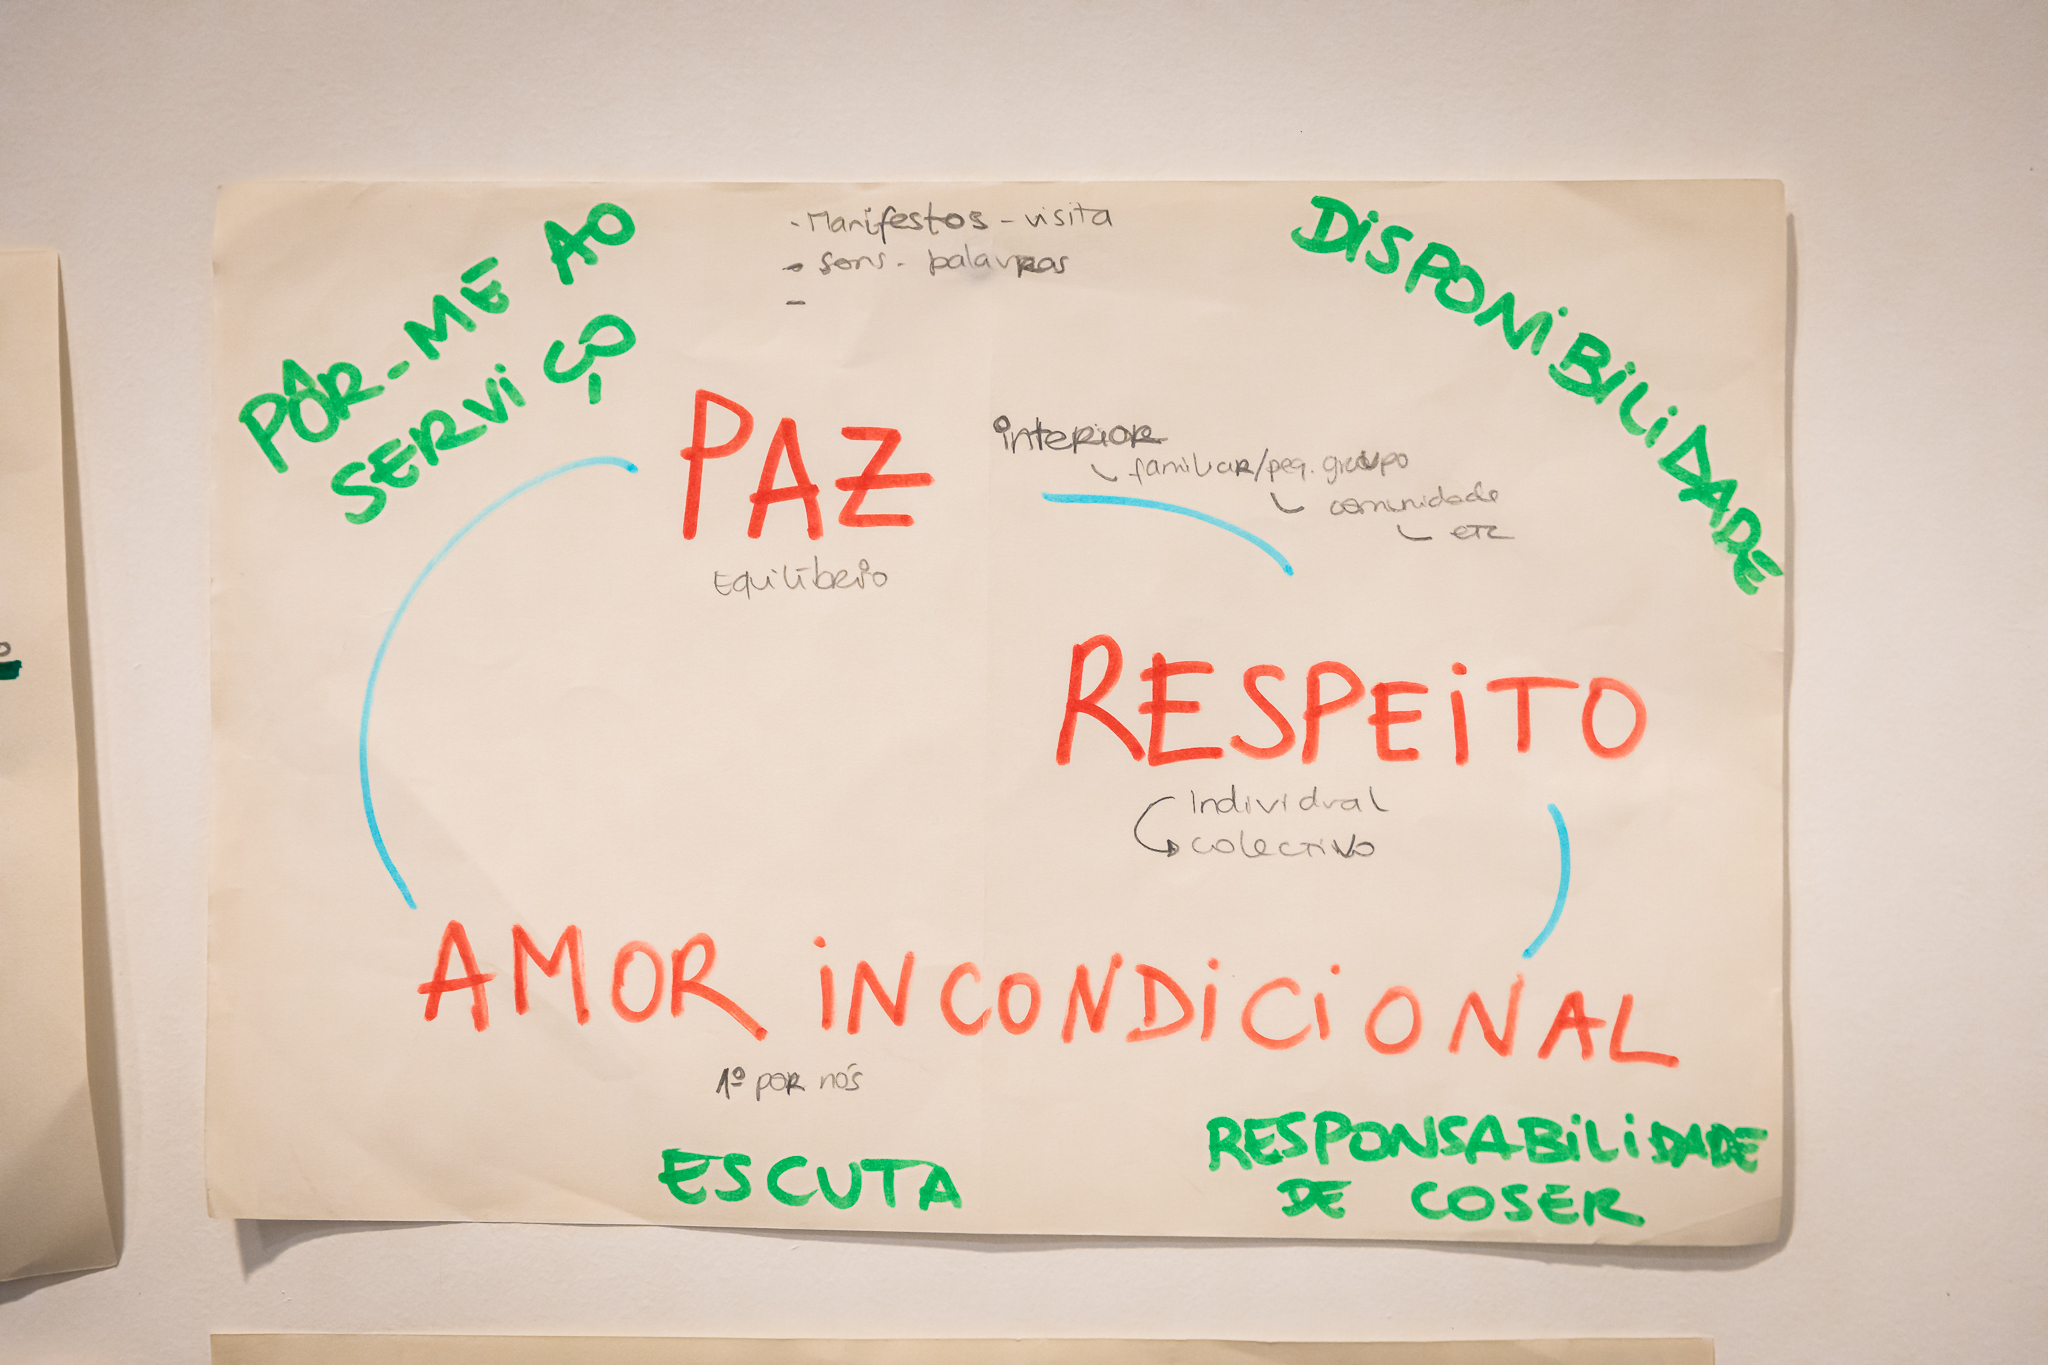 · Manifestos - visita
- sons - palavras
-
PÔR-ME AO
SERVIÇO
DISPONIBILIDADE
PAZ
interior
familiar/peq. grupo
comunidade
etc
Equilíbrio
RESPEITO
Individual
colectivo
AMOR INCONDICIONAL
1º por nós
ESCUTA
RESPONSABILIDADE
DE COSER